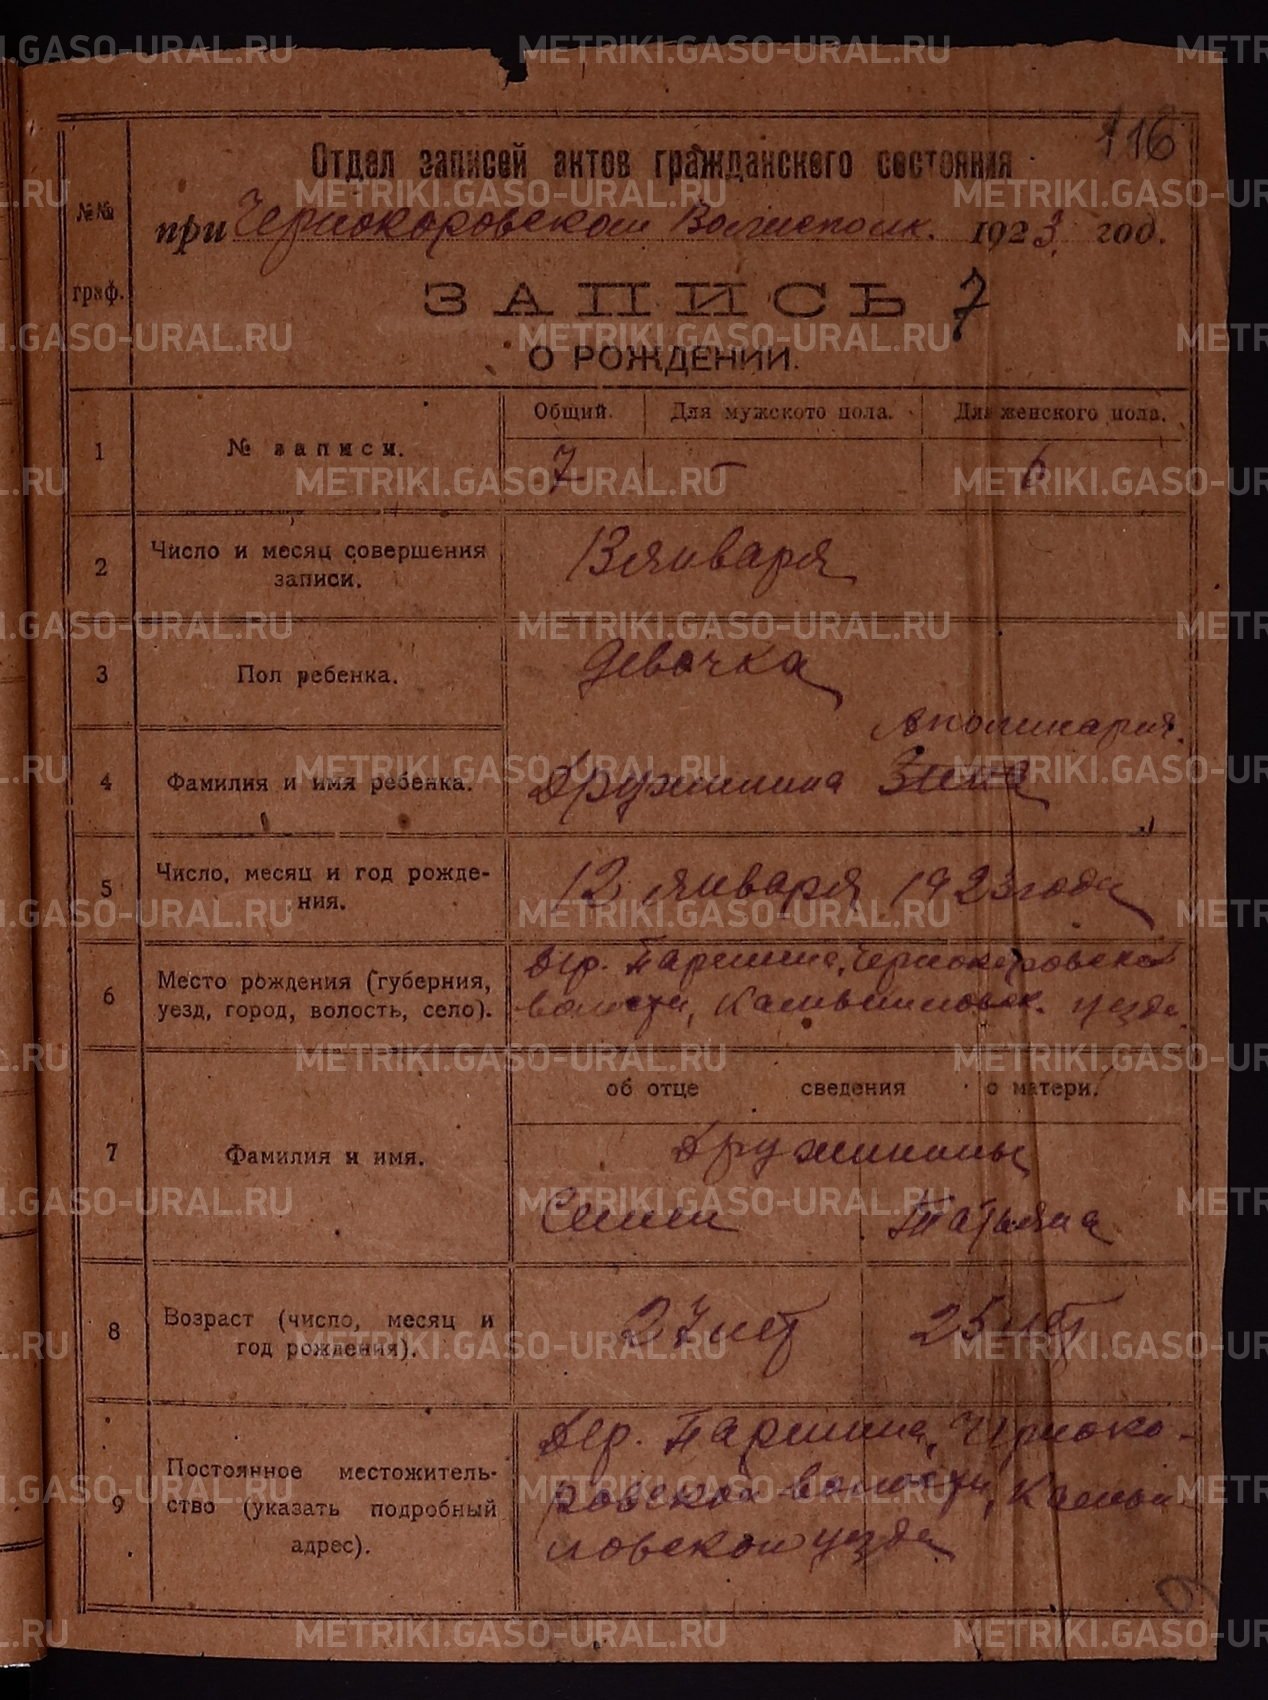 116
Отдел записей актов гражданского состояния
№№ граф.
при Чернокоровском Волисполк. 1923 год.
ЗАПИСЬ 7
О РОЖДЕНИИ.
1 № записи. Общий. Для мужского пола. Для женского пола.
7 – 6
2 Число и месяц совершения записи. 13 января
3 Пол ребенка. Девочка
Аполинария.
4 Фамилия и имя ребенка. Дружинина Зина
5 Число, месяц и год рожде-
ния. 12 января 1923 года
6 Место рождения (губерния,
уезд, город, волость, село).
Дер. Паршина, Чернокоровской
волости, Камышловск. уезда.
об отце сведения о матери.
7 Фамилия и имя. Дружинины
Семен Татьяна
8 Возраст (число, месяц и
год рождения). 27 лет 25 лет
9 Постоянное местожитель-
ство (указать подробный
адрес).
Дер. Паршина, Черноко-
ровской волости, Камыш
ловского уезда
METRIKI.GASO-URAL.RU